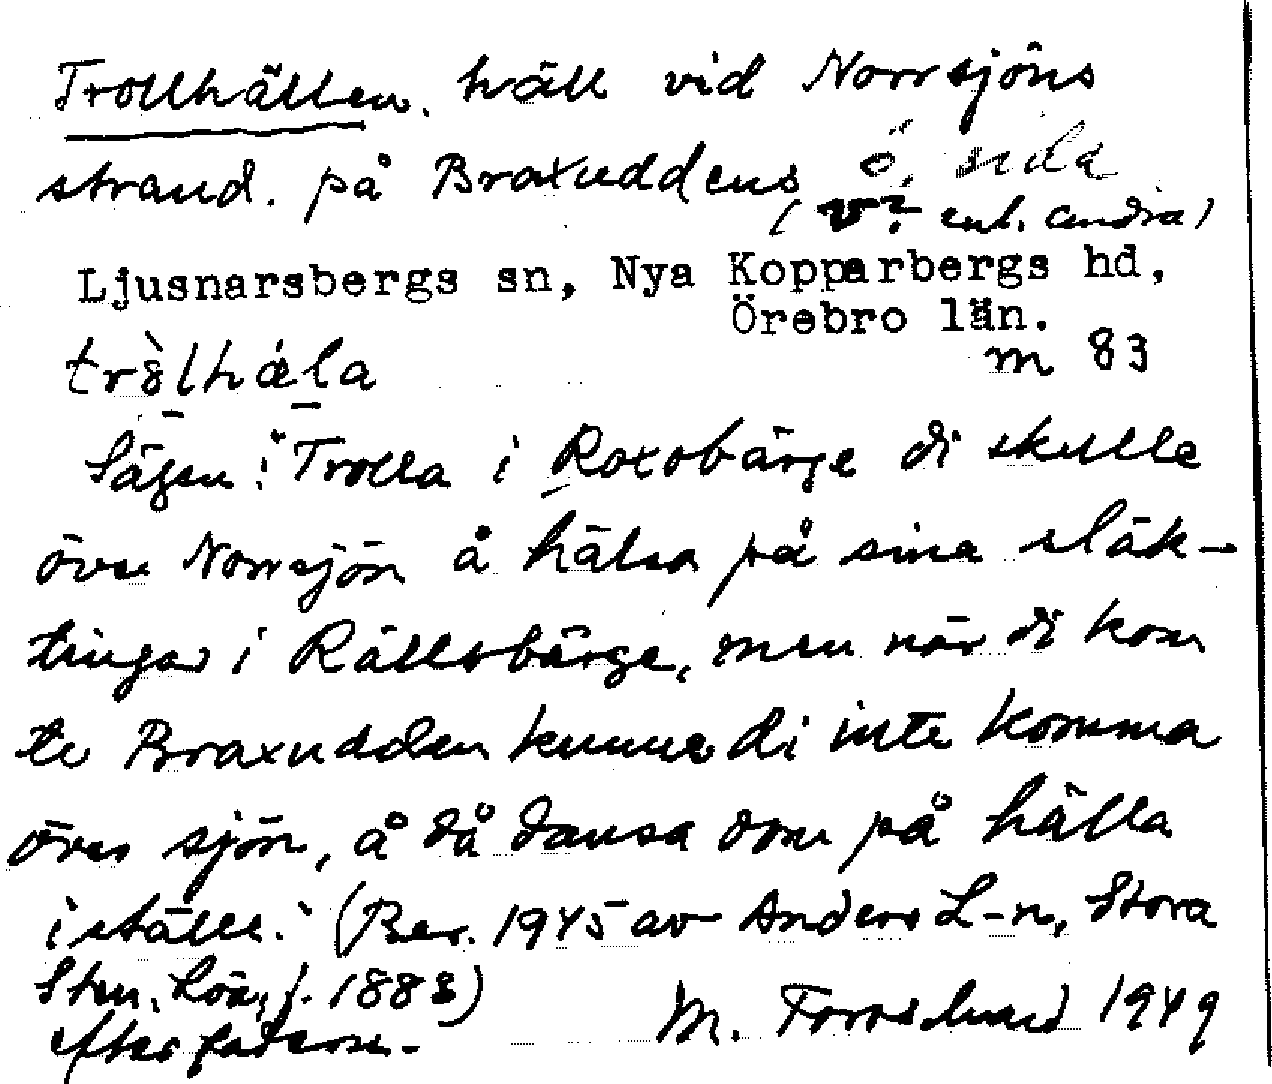 Trollhällen. häll vid Norrsjöns
strand. på Braxuddens ö. sida
(v? enl. andra)
Ljusnarsbergs sn, Nya Kopparbergs hd,
Örebro län.
m 83
Sägen: "Trolla i Roxobärge di skulle
över Norrsjön å hälsa på sina släk-
tingar i Rällsbärge, men när di kom
te Braxudden kunne di inte komma
över sjön, å då dansa dom på hälla
i ställe." (Ber. 1945 av Anders L-n, Stora
Sten, Löa, f. 1883)
efter fadern.
M. 1949